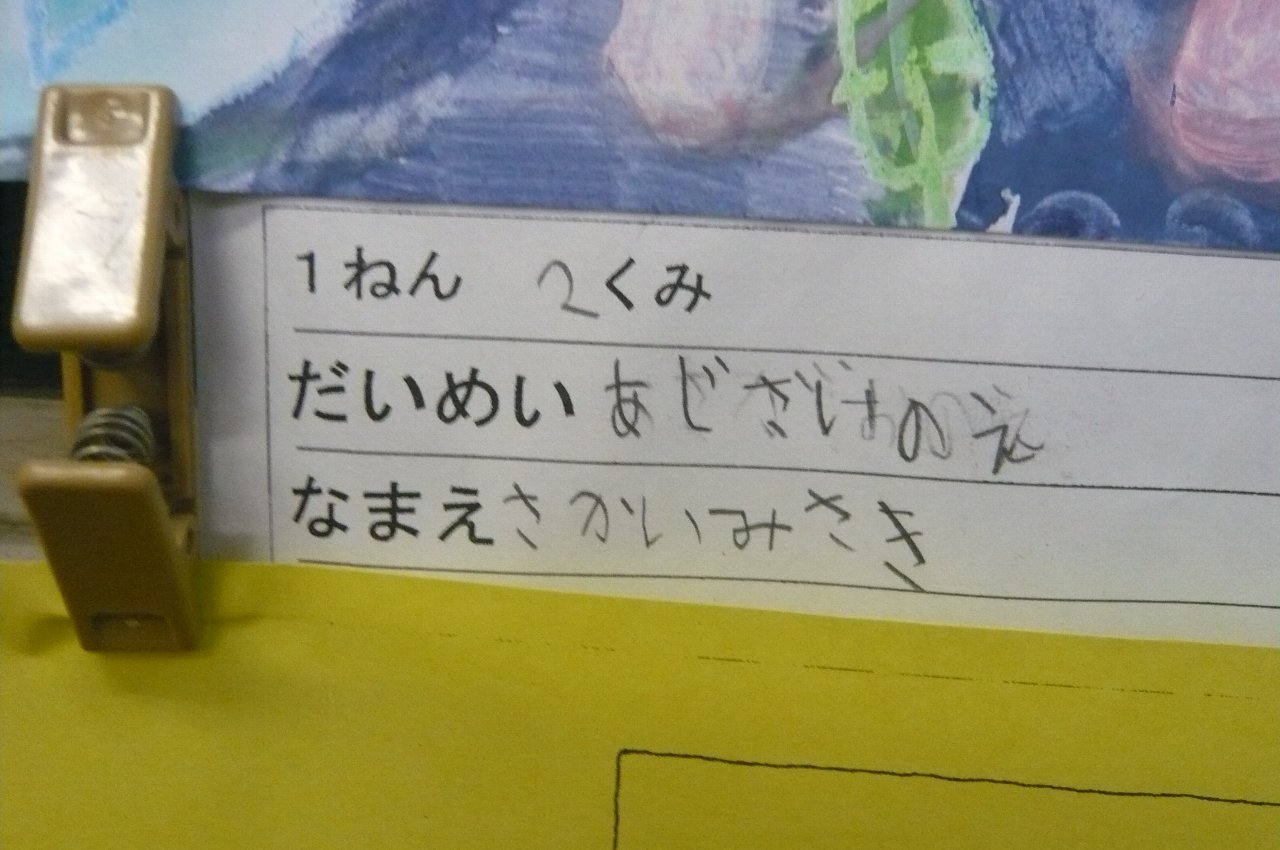 1ねん 2くみ
だいめい あじさいのえ
なまえ さかいみさき